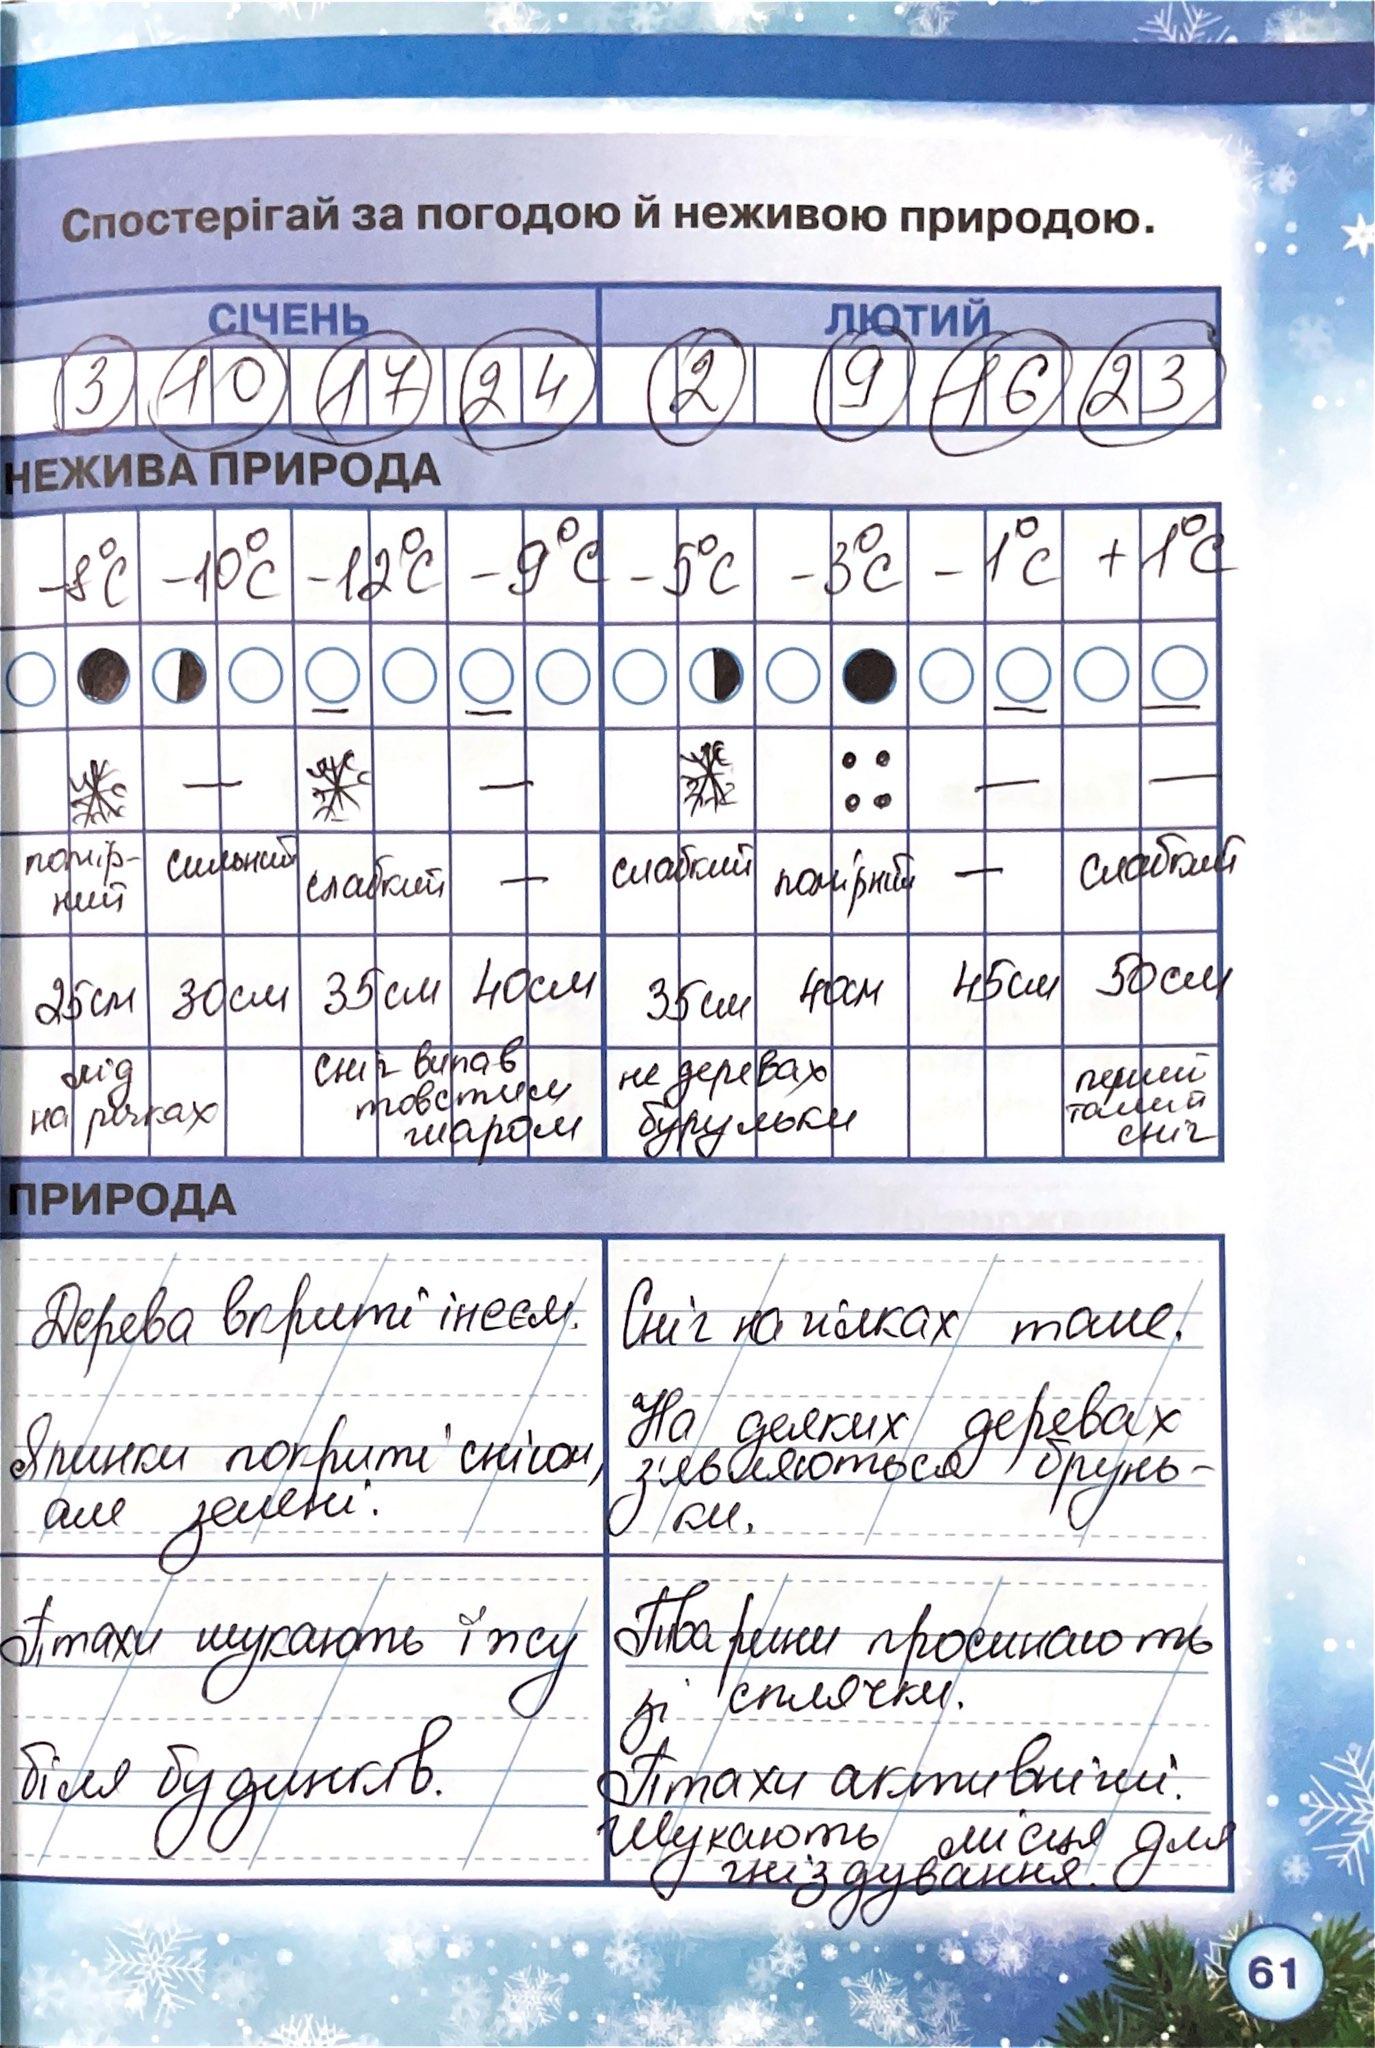 Спостерігай за погодою й неживою природою.
СІЧЕНЬ ЛЮТИЙ
3 10 17 24 2 9 16 23
НЕЖИВА ПРИРОДА
-8°C -10°C -12°C -9°C -5°C -3°C -1°C +1°C
— — — —
помір- сильний слабкий — слабкий помірний — слабкий
ний
25см 30см 35см 40см 35см 40см 45см 50см
лід сніг випав не деревах перший
на річках товстим бурульки талий
шаром сніг
ПРИРОДА
Дерева вкриті інеєм.
Ялинки покриті снігом,
але зелені.
Сніг на гілках тане.
На деяких деревах
з'являються брунь-
ки.
Птахи шукають їжу
біля будинків.
Тварини просинають
зі сплячки.
Птахи активніші.
Шукають місця для
гніздування.
61